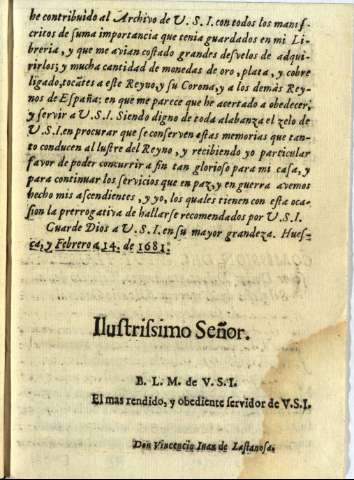 he contribuido al Archivo de V. S. I. con todos los manuſ-
critos de ſuma importancia que tenia guardados en mi Li-
breria, y que me avian coſtado grandes deſvelos de adqui-
rirlos; y mucha cantidad de monedas de oro, plata, y cobre
ligado, tocãtes a eſte Reyno, y ſu Corona, y a los demàs Rey-
nos de Eſpaña; en que me parece que he acertado a obedecer,
y ſervir a V. S. I. Siendo digno de toda alabanza el zelo de
V. S. I. en procurar que ſe conſerven eſtas memorias que tan-
to conducen al luſtre del Reyno, y recibiendo yo particular
favor de poder concurrir a fin tan glorioſo para mi caſa, y
para continuar los ſervicios que en paz, y en guerra avemos
hecho mis aſcendientes, y yo, los quales tienen con eſta oca-
ſion la prerrogativa de hallarſe recomendados por V. S. I.
Guarde Dios a V. S. I. en ſu mayor grandeza. Hueſ-
ca, y Febrero a 14. de 1681.
Iluſtriſsimo Señor.
B. L. M. de V. S. I.
El mas rendido, y obediente ſervidor de V. S. I.
Don Vincencio Iuan de Laſtanoſa.